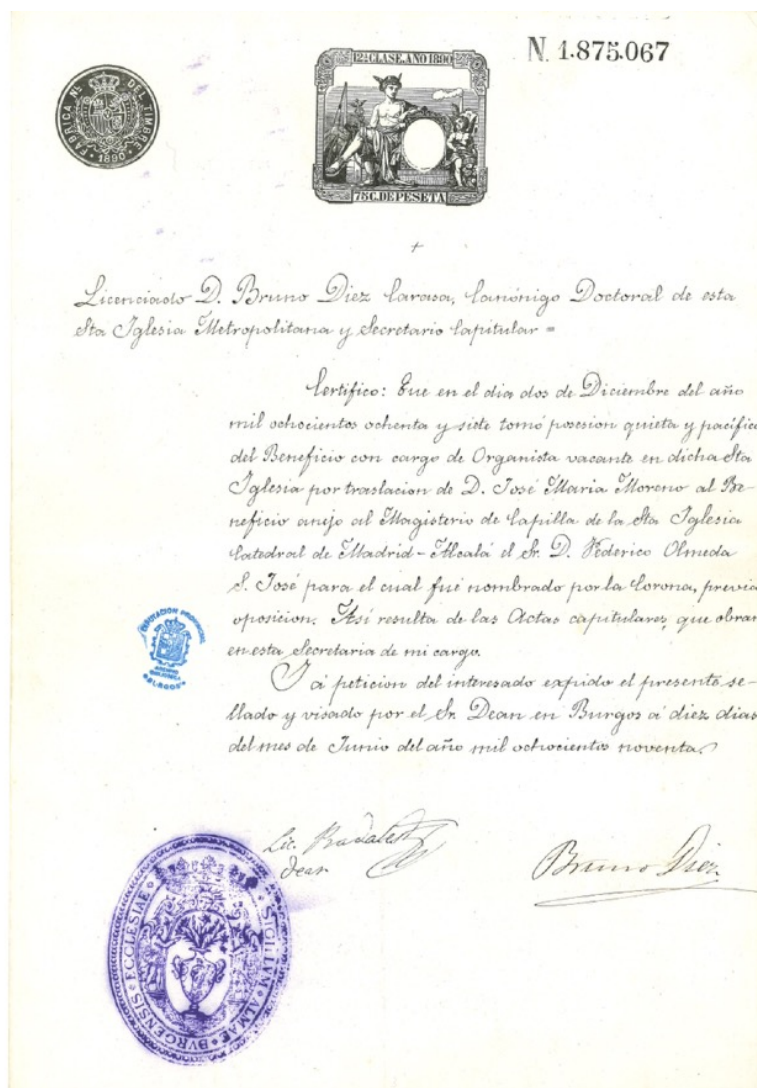 N. 1.875.067
12ª CLASE. AÑO 1890
FABRICA Nˡ. DEL TIMBRE
1890
75 C. DE PESETA
Licenciado D. Bruno Diez Carasa, Canónigo Doctoral de esta
Sta Iglesia Metropolitana y Secretario Capitular =
Certifico: Que en el dia dos de Diciembre del año
mil ochocientos ochenta y siete tomó posesion quieta y pacífica
del Beneficio con cargo de Organista vacante en dicha Sta
Iglesia por traslacion de D. José Maria Moreno al Be-
neficio anejo al Magisterio de Capilla de la Sta Iglesia
Catedral de Madrid-Alcalá el Sr. D. Federico Olmeda
S. José para el cual fué nombrado por la Corona, previa
oposicion. Así resulta de las Actas capitulares, que obran
en esta Secretaria de mi cargo.
DIPUTACION PROVINCIAL
BURGOS
Y á peticion del interesado expido el presente se-
llado y visado por el Sr. Dean en Burgos á diez dias
del mes de Junio del año mil ochocientos noventa.
Lic.
Dean
Bruno Diez
SIGILLVM ALMAE BVRGENSIS ECCLESIAE